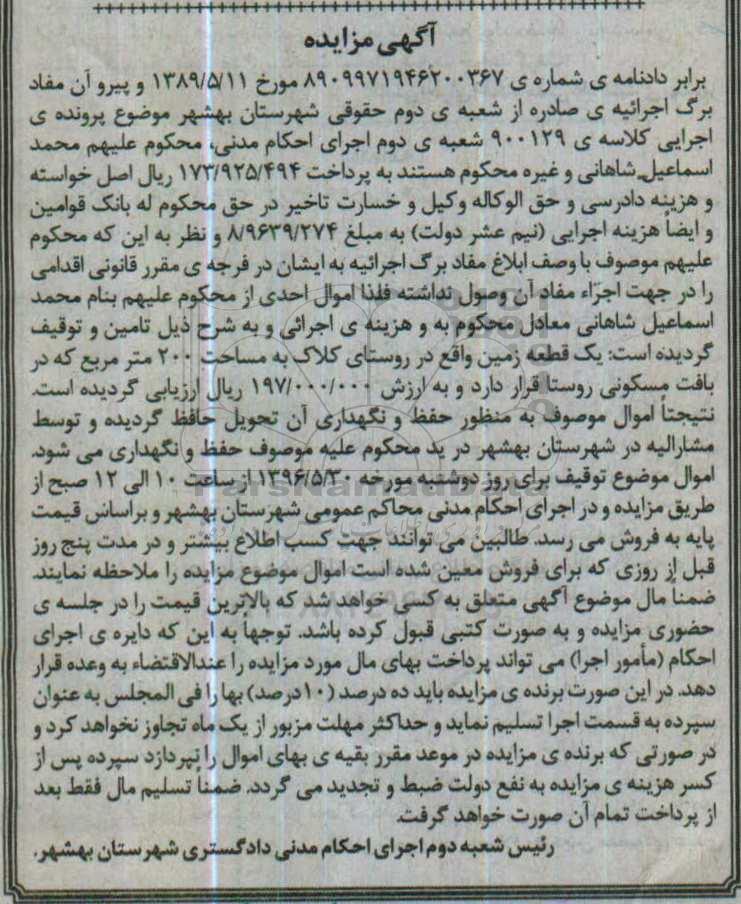 آگهی مزایده
برابر دادنامه ی شماره ی ۸۹۰۹۹۷۱۹۴۶۲۰۰۳۶۷ مورخ ۱۳۸۹/۵/۱۱ و پیرو آن مفاد
برگ اجرائیه ی صادره از شعبه ی دوم حقوقی شهرستان بهشهر موضوع پرونده ی
اجرایی کلاسه ی ۹۰۰۱۲۹ شعبه ی دوم اجرای احکام مدنی، محکوم علیهم محمد
اسماعیل شاهانی و غیره محکوم هستند به پرداخت ۱۷۳/۹۲۵/۴۹۴ ریال اصل خواسته
و هزینه دادرسی و حق الوکاله وکیل و خسارت تاخیر در حق محکوم له بانک قوامین
و ایضاً هزینه اجرایی (نیم عشر دولت) به مبلغ ۸/۹۶۳۹/۲۷۴ و نظر به این که محکوم
علیهم موصوف با وصف ابلاغ مفاد برگ اجرائیه به ایشان در فرجه ی مقرر قانونی اقدامی
را در جهت اجراء مفاد آن وصول نداشته فلذا اموال احدی از محکوم علیهم بنام محمد
اسماعیل شاهانی معادل محکوم به و هزینه ی اجرائی و به شرح ذیل تامین و توقیف
گردیده است: یک قطعه زمین واقع در روستای کلاک به مساحت ۲۰۰ متر مربع که در
بافت مسکونی روستا قرار دارد و به ارزش ۱۹۷/۰۰۰/۰۰۰ ریال ارزیابی گردیده است.
نتیجتاً اموال موصوف به منظور حفظ و نگهداری آن تحویل حافظ گردیده و توسط
مشارالیه در شهرستان بهشهر در ید محکوم علیه موصوف حفظ و نگهداری می شود.
اموال موضوع توقیف برای روز دوشنبه مورخه ۱۳۹۶/۵/۳۰ از ساعت ۱۰ الی ۱۲ صبح از
طریق مزایده و در اجرای احکام مدنی محاکم عمومی شهرستان بهشهر و براساس قیمت
پایه به فروش می رسد. طالبین می توانند جهت کسب اطلاع بیشتر و در مدت پنج روز
قبل از روزی که برای فروش معین شده است اموال موضوع مزایده را ملاحظه نمایند.
ضمناً مال موضوع آگهی متعلق به کسی خواهد شد که بالاترین قیمت را در جلسه ی
حضوری مزایده و به صورت کتبی قبول کرده باشد. توجهاً به این که دایره ی اجرای
احکام (مأمور اجرا) می تواند پرداخت بهای مال مورد مزایده را عندالاقتضاء به وعده قرار
دهد. در این صورت برنده ی مزایده باید ده درصد (۱۰درصد) بها را فی المجلس به عنوان
سپرده به قسمت اجرا تسلیم نماید و حداکثر مهلت مزبور از یک ماه تجاوز نخواهد کرد و
در صورتی که برنده ی مزایده در موعد مقرر بقیه ی بهای اموال را نپردازد سپرده پس از
کسر هزینه ی مزایده به نفع دولت ضبط و تجدید می گردد. ضمناً تسلیم مال فقط بعد
از پرداخت تمام آن صورت خواهد گرفت.
رئیس شعبه دوم اجرای احکام مدنی دادگستری شهرستان بهشهر.
ParsNamadData